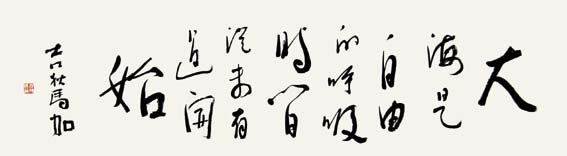 大
海是
自由
的呼吸
时间
从未有
过开
始
吉狄马加